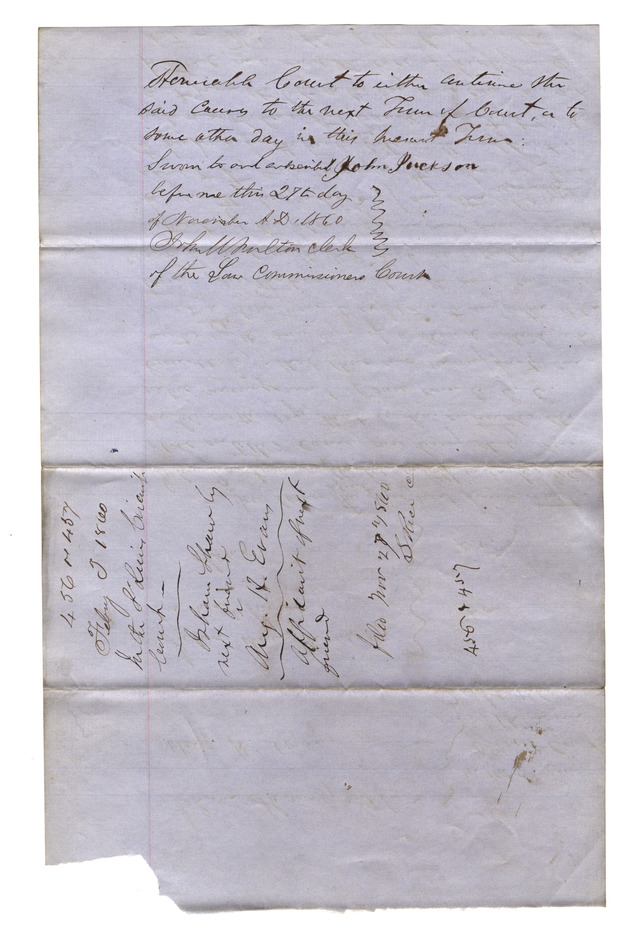 Honorable Court to either continue the
said Causes to the next Term of Court, or to
some other day in this present Term.
Sworn to and subscribed John Jackson
before me this 27th day
of November A.D. 1860
John W Moulton Clerk
of the Law Commissioners Court
456 & 457
Feby T 1860
In the St Louis Circuit
Court
Isham Shaw by
next friend
v
Aug. H. Evans
Affidavit of next
friend
filed Nov 27th 1860
S Rice C
456 & 457